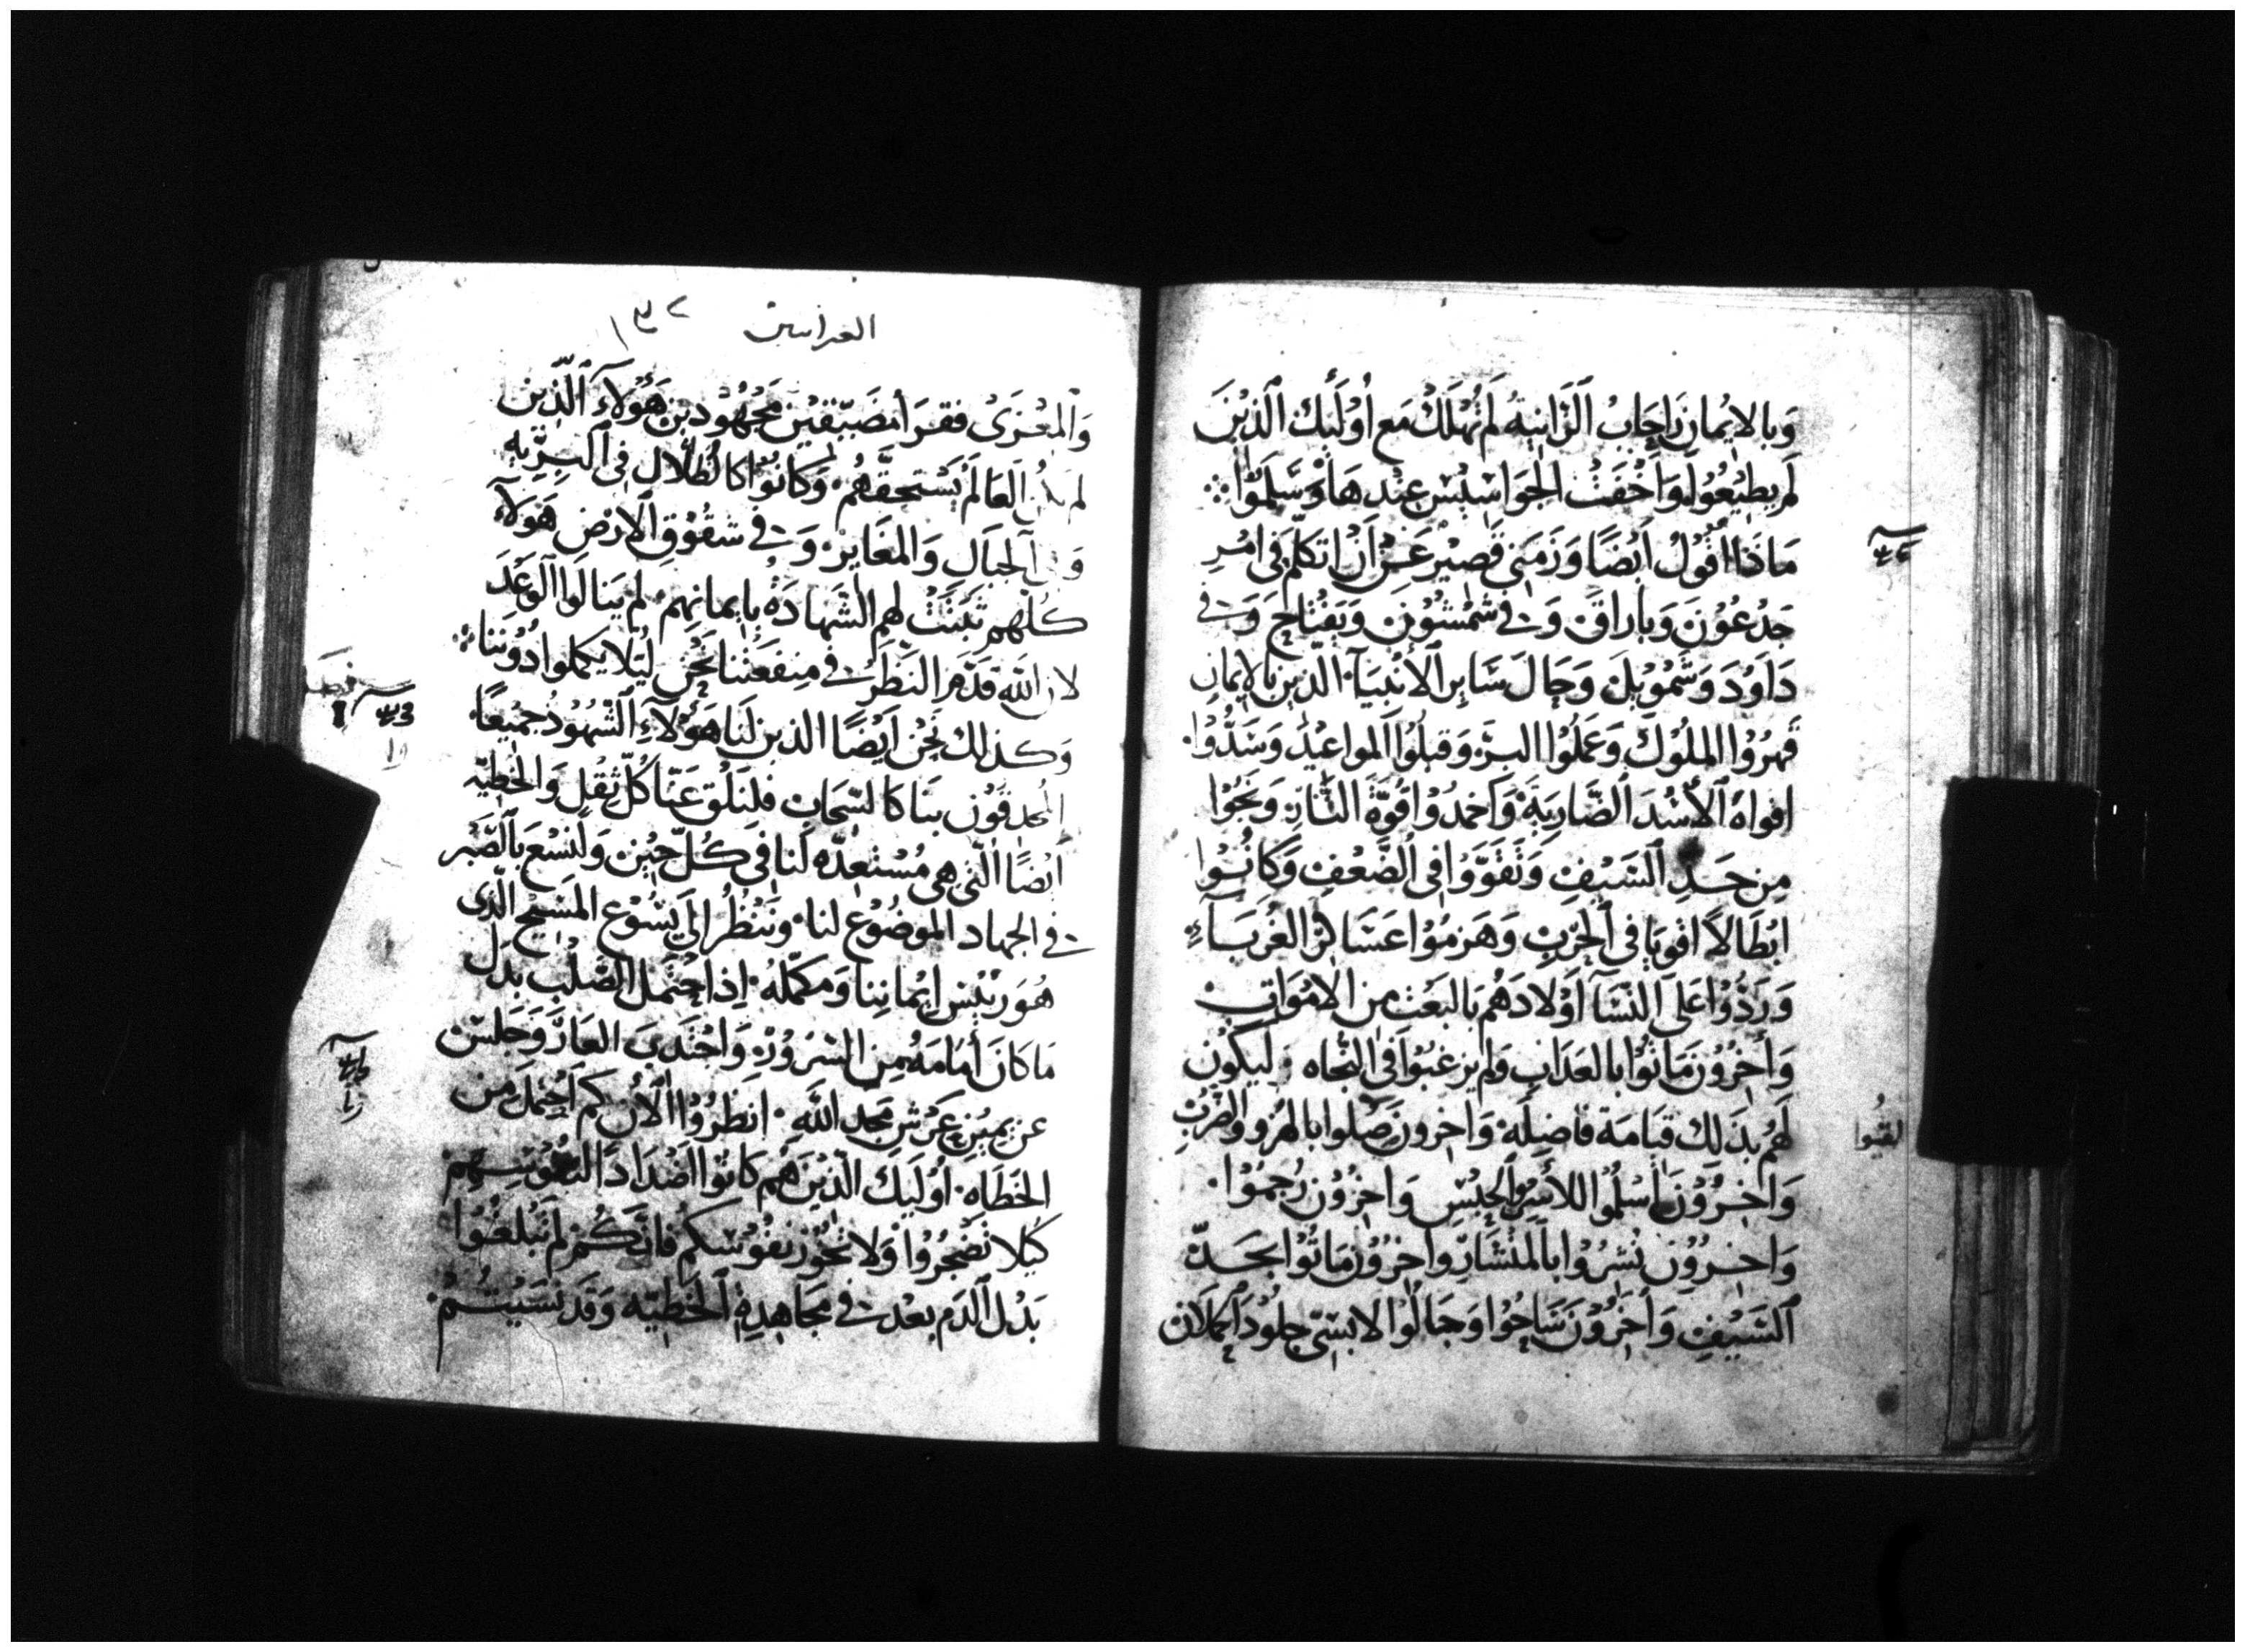 وَبالايْمانِ رَاحَابُ الزَّانِيةُ لَم تُهلَكْ مَع أُوْلَٰيِكَ الَّذِيْنَ
لَم يطِيْعُوا وَاخْفَتْ الجَوَاسِيْسَ عِنْدهَا وَسَلِمُوا
مَاذَا اقُوْلُ اَيْضًا وَزَمَنِي قَصِيْر عَنْ اَنْ اتكلّم في امْرِ
جَدْعُوْنَ وَبارَاقَ وَفي شَمْشُوْنَ وَيَفْتَاحَ وَفي
دَاوُدَ وَشَمُوْيلَ وَحَالَ سَايِرِ الأَنْبِيَآءِ الذين بالايمانِ
قَهرُوْا الملُوْكَ وَعَمِلُوا البِرَّ وَقبلُوْا المواعِيْدَ وَسَدُّوْا
افواهَ الأُسْدَ الضَّارِيَةَ وَاخمدُوْا قُوَّةَ النَّارِ وَنَجُوْا
مِن حَدِ السَّيْفِ وَتَقوَّوَا في الضَّعْفِ وَكَانُوْا
ابْطَالًا اقْوِيَا في الحَرْبِ وَهَزمُوْا عَسَاكِرَ الغُرَبَآءِ
وَرَدُّوْا عَلى النّسَآ اَوْلادَهُم بَالبَعْث مِن الامْوَاتِ
وَأَخَرُوْنَ مَاتُوْا بالعَذَابِ وَلم يرغبُوْا في النَّجَاه ليَكُوْن
لَهُم بذلك قيَامَة فاضِلَه وَاخرون صَلوا بالهُزوِ والضربِ
وَاخَرُوْنَ اسْلمُوْا للأَسْرِ وَالحبْسِ وَاخرُوْن رُجمُوْا
وَاخرُوْن نُشِرُوْا بالمنْشَارِ واخرُوْن مَاتُوْا بحَدّ
السَّيْفِ وَأَخَرُوْنَ سَاحُوْا وَجَالُوْا لابسِيْ جلُوْدَ الحملان
لقيُوا
العبرانيين ١٣٢
وَالمعْزَىْ فقرَا مضَيّقِيْن مَجْهُوْدين هَؤُلآءِ الَّذِين
لم يكُن العَالَمُ يَسْتَحقّهُم وَكَانُوْا كالضُلَّالِ في البرِّيه
وَفي الجبَالِ وَالمغَايِر وَفي شقُوْقِ الارْضِ هَوُلآءِ
كلهم ثَبَتَتْ لهم الشَّهادَةُ بايمانهِم لم يَنالُوا الوَعْدَ
لان الله قدَّم النَّظَرَ في مِنفَعَتنا نَحْن ليُلا يكملوا دُوْنَنا
وَكذلك نَحْن اَيْضًا الذين لنَا هَؤُلآءِ الشُهُوْدُ جميْعًا
المُحدقُوْن بنَا كالسّحَابِ فلنَلْقِ عَنّا كُلّ ثِقْلٍ وَالخطِيّه
أَيْضًا الّتي هي مُسْتعِدّه لَنا في كُلّ حِيْنٍ وَلْنَسْعَ بالصَّبْر
في الجهاد الموضُوْع لنا وَنَنْظُرُ الى يَسُوْع المَسِيْح الّذي
هُوَ رَئِيْس ايْمانِنا وَمكمِّلهُ اِذ احتَمل الصَّلْبَ بَدَل
مَا كانَ أَمَامَهُ مِن السُرُوْر وَاجتَدى العَارَ وَجَلَسَ
عن يميْنِ عَرْشِ مَجدِ الله انظُرُوْا الأَن كم احتمَل مِن
الخَطَاه اُوْلَيكَ الَّذِيْنَ هُم كانُوْا اضْدَادًا لنفُوْسِهِم
كيْلا تَضْجرُوْا وَلا تَخُوْر نفُوْسُكُم فانَّكُم لم تَبْلغُوْا
بَدْل الدَم بعدُ في مجَاهدةِ الخَطِيّه وَقَد نَسِيْتُمْ